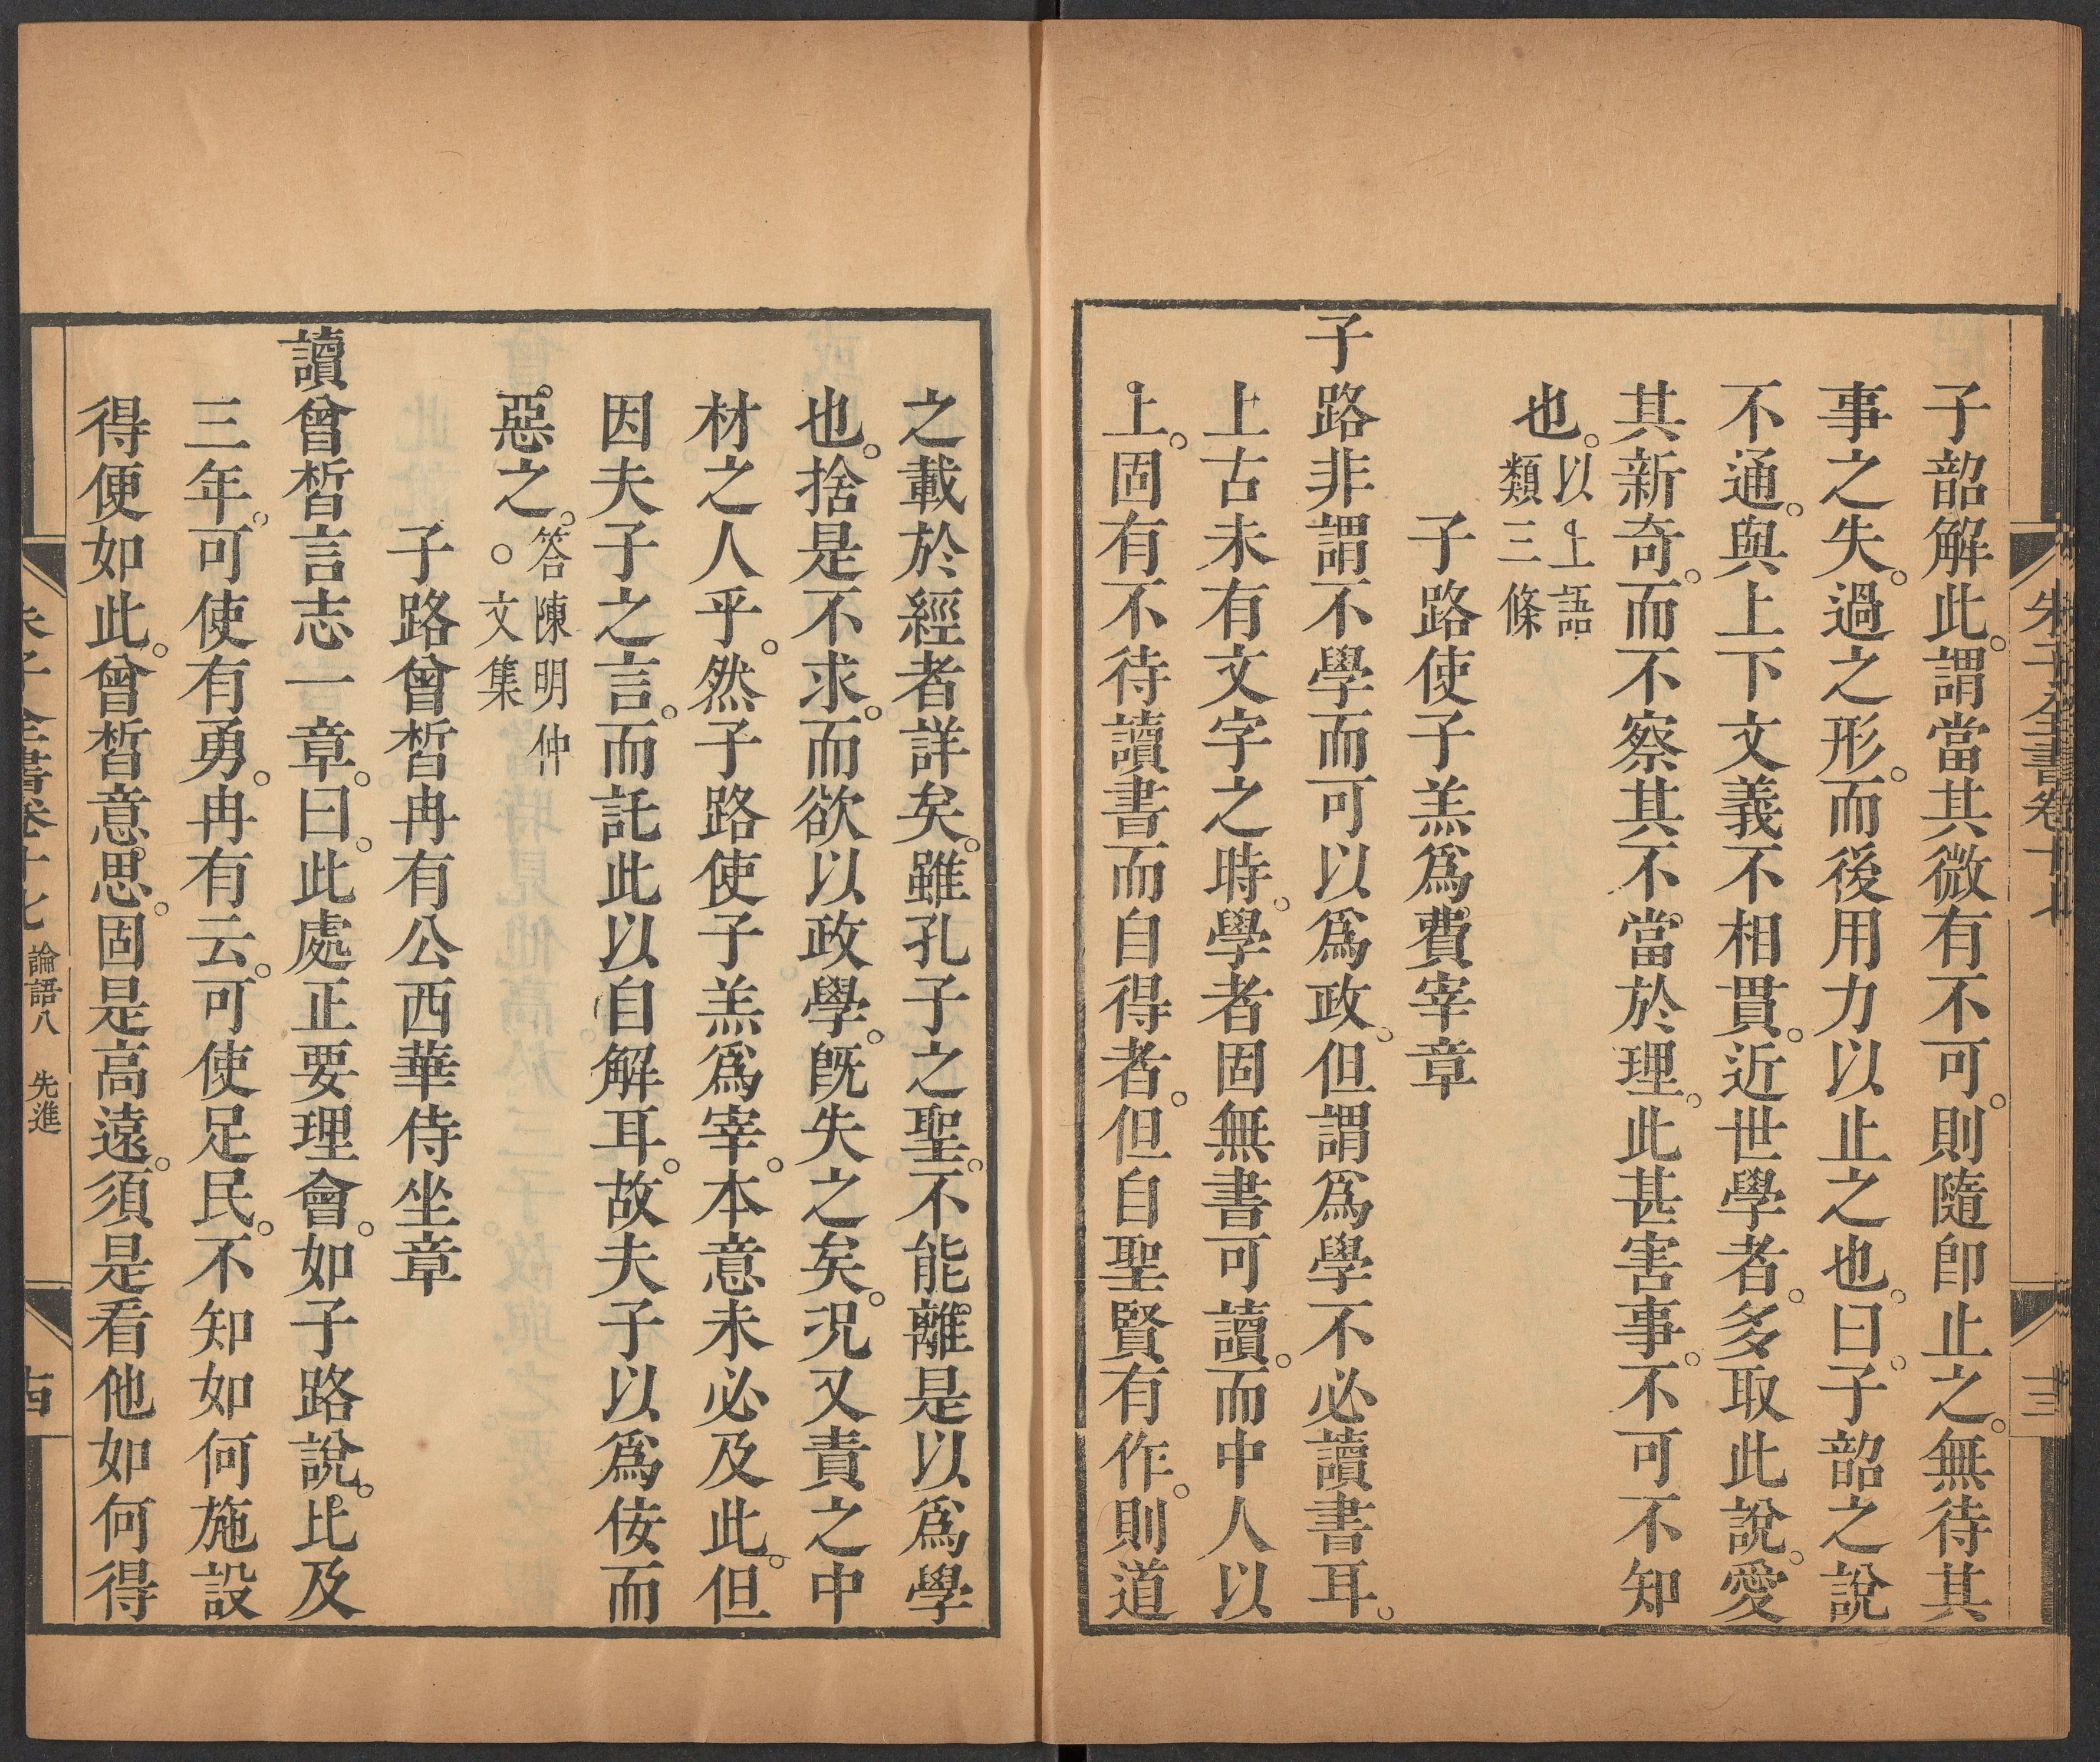 子韶解此。謂當其微有不可。則隨卽止之。無待其
事之失。過之形。而後用力以止之也。曰。子韶之說
不通。與上下文義不相貫。近世學者。多取此說。愛
其新奇。而不察其不當於理。此甚害事。不可不知
也。以上語類三條
子路使子羔爲費宰章
子路非謂不學而可以爲政。但謂爲學不必讀書耳。
上古未有文字之時。學者固無書可讀。而中人以
上。固有不待讀書而自得者。但自聖賢有作。則道
朱子全書卷十七
之載於經者詳矣。雖孔子之聖。不能離是以爲學
也。捨是不求。而欲以政學。旣失之矣。況又責之中
材之人乎。然子路使子羔爲宰。本意未必及此。但
因夫子之言。而託此以自解耳。故夫子以爲佞而
惡之。答陳明仲。文集
子路曾晳冉有公西華侍坐章
讀曾晳言志一章。曰。此處正要理會。如子路說。比及
三年。可使有勇。冉有云。可使足民。不知如何施設
得便如此。曾晳意思。固是高遠。須是看他如何得
朱子全書卷十七 論語八 先進 十四